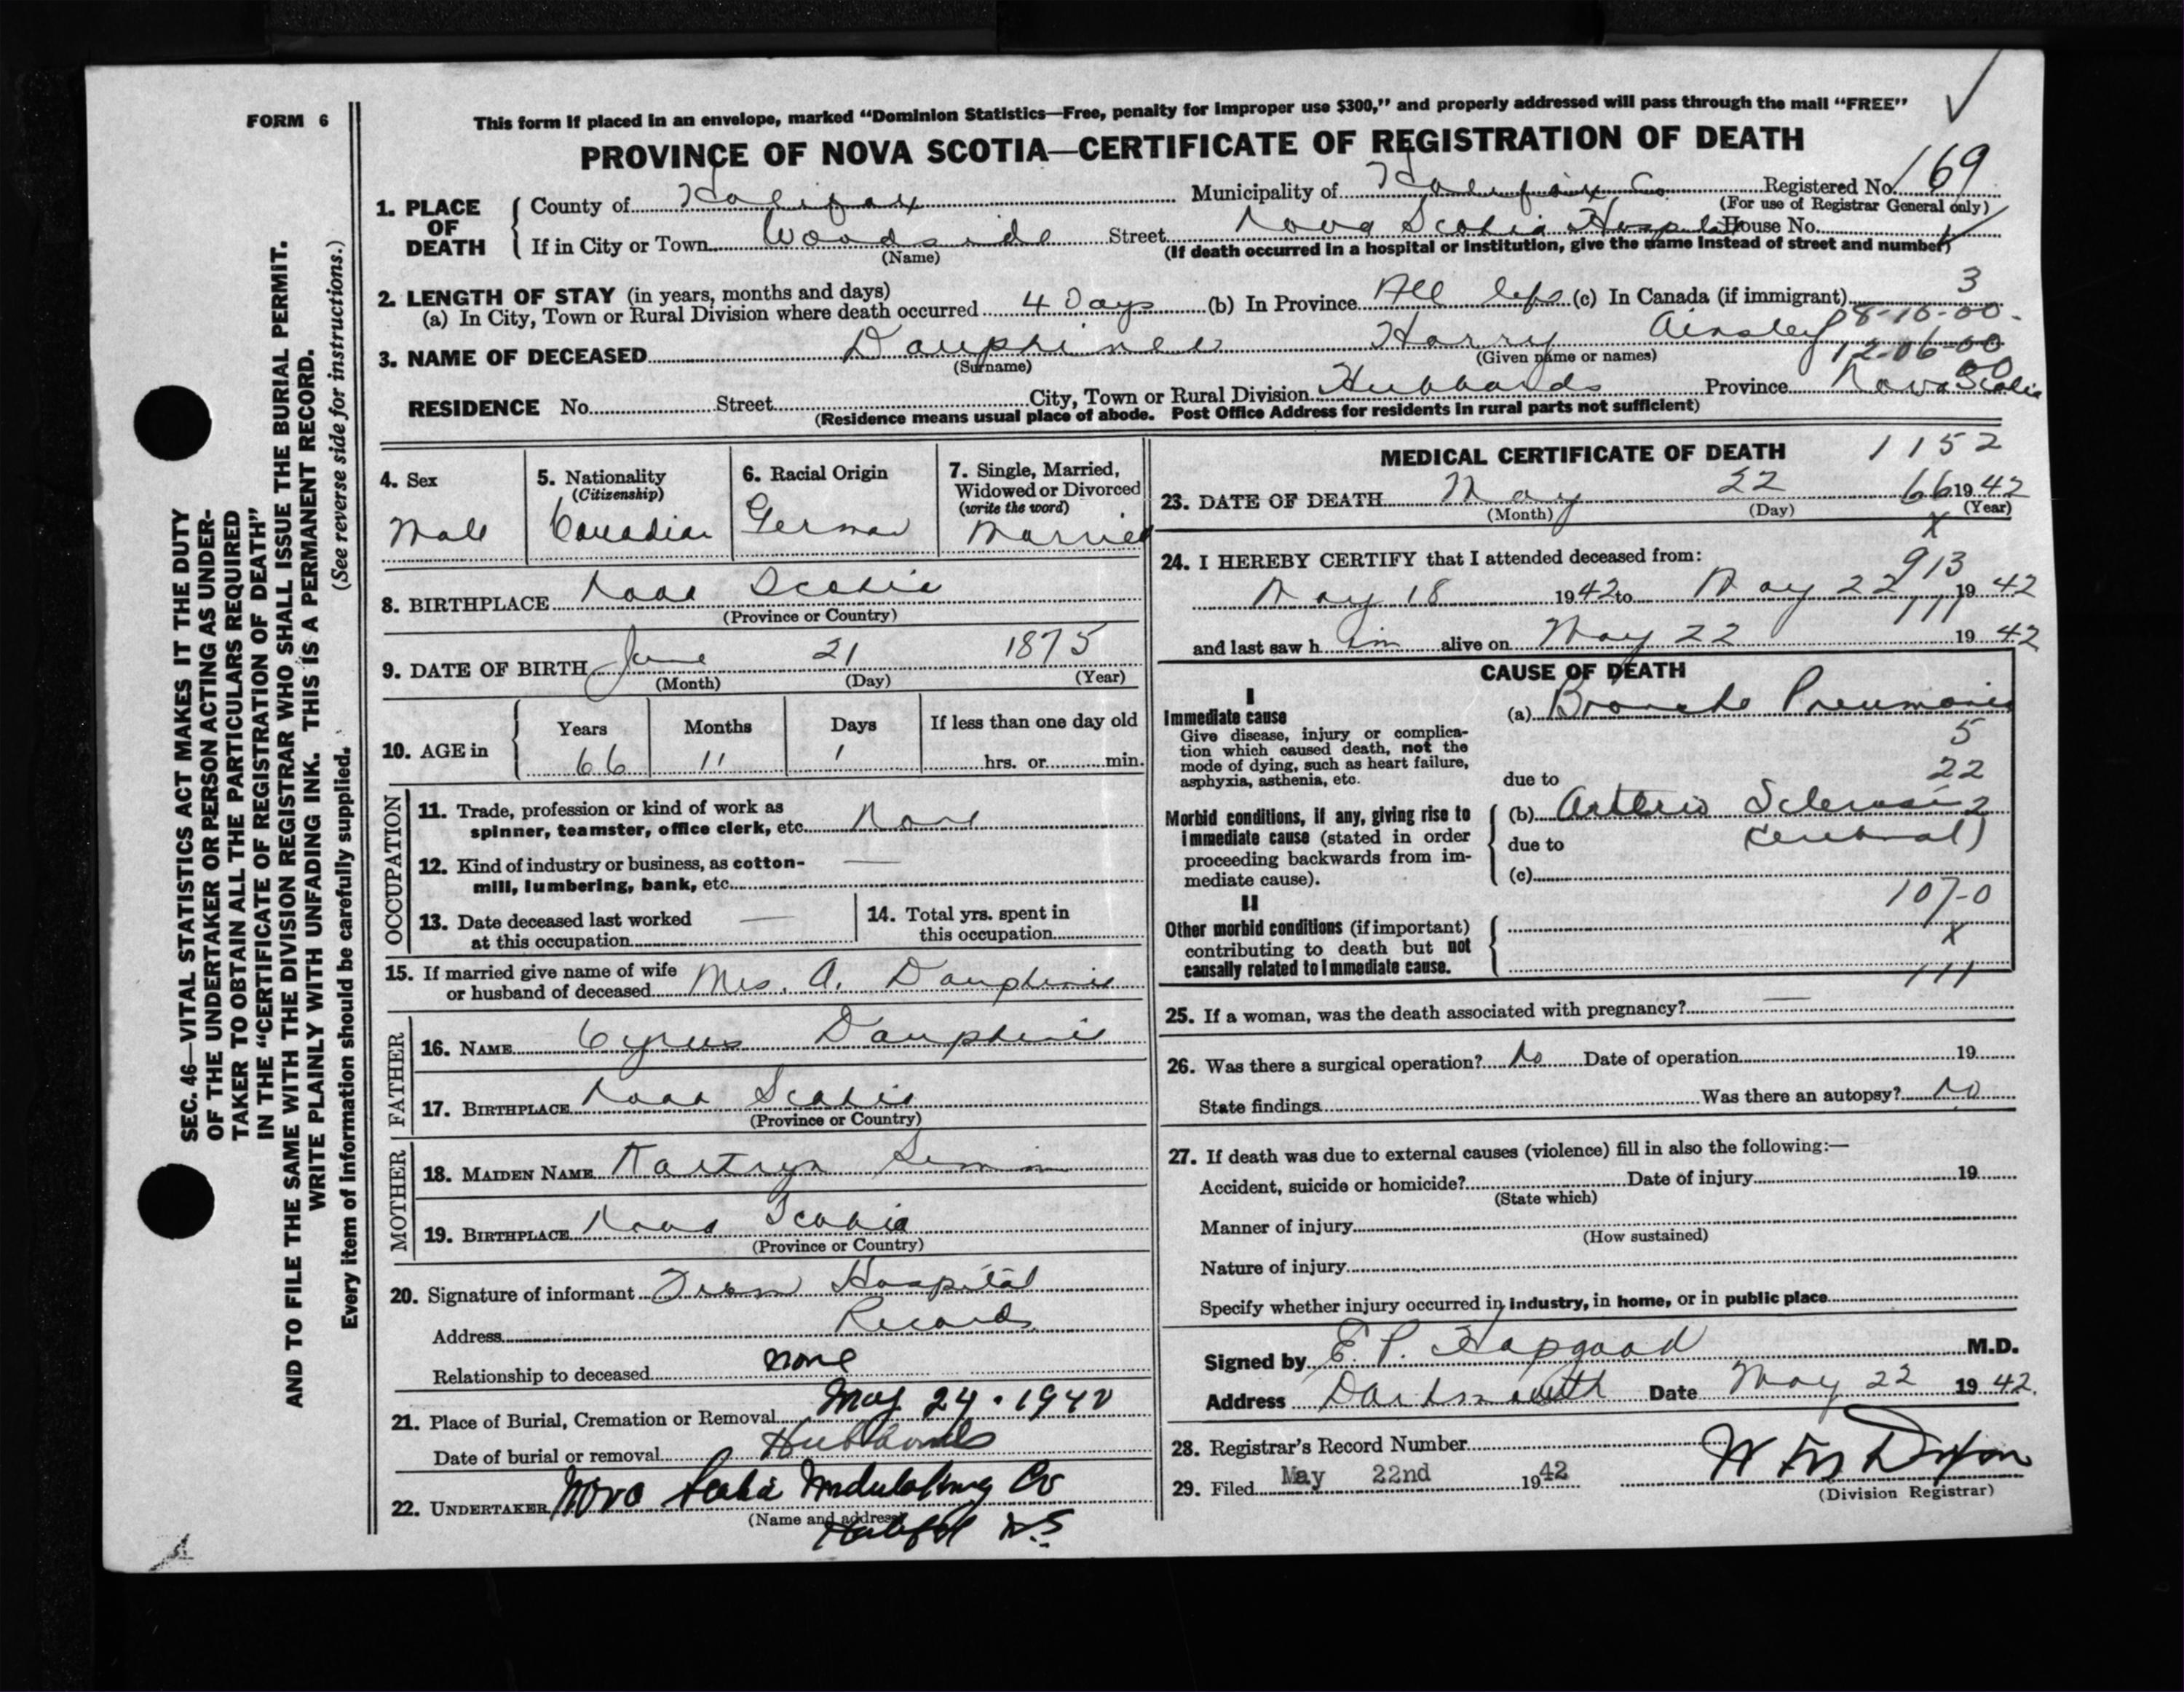 FORM 6
This form if placed in an envelope, marked "Dominion Statistics—Free, penalty for improper use $300," and properly addressed will pass through the mail "FREE"
PROVINCE OF NOVA SCOTIA—CERTIFICATE OF REGISTRATION OF DEATH
SEC. 46—VITAL STATISTICS ACT MAKES IT THE DUTY
OF THE UNDERTAKER OR PERSON ACTING AS UNDER-
TAKER TO OBTAIN ALL THE PARTICULARS REQUIRED
IN THE "CERTIFICATE OF REGISTRATION OF DEATH"
AND TO FILE THE SAME WITH THE DIVISION REGISTRAR WHO SHALL ISSUE THE BURIAL PERMIT.
WRITE PLAINLY WITH UNFADING INK. THIS IS A PERMANENT RECORD.
Every item of information should be carefully supplied. (See reverse side for instructions.)
1. PLACE OF DEATH
County of Halifax Municipality of Halifax Co. Registered No. 169
(For use of Registrar General only)
If in City or Town Woodside Street Nova Scotia Hospital House No.
(Name) (If death occurred in a hospital or institution, give the name instead of street and number)
2. LENGTH OF STAY (in years, months and days) 3
(a) In City, Town or Rural Division where death occurred 4 Days (b) In Province All life (c) In Canada (if immigrant)
08-10-00-
3. NAME OF DECEASED Dauphinee Harry Ainsley
(Surname) (Given name or names) 12-06-00
00
RESIDENCE No. Street City, Town or Rural Division Hubbards Province Nova Scotia
(Residence means usual place of abode. Post Office Address for residents in rural parts not sufficient)
4. Sex
Male
5. Nationality
(Citizenship)
Canadian
6. Racial Origin
German
7. Single, Married,
Widowed or Divorced
(write the word)
Married
8. BIRTHPLACE Nova Scotia
(Province or Country)
9. DATE OF BIRTH June 21 1875
(Month) (Day) (Year)
10. AGE in
Years Months Days If less than one day old
66 11 1 hrs. or min.
OCCUPATION
11. Trade, profession or kind of work as
spinner, teamster, office clerk, etc. None
12. Kind of industry or business, as cotton- —
mill, lumbering, bank, etc.
13. Date deceased last worked —
at this occupation
14. Total yrs. spent in
this occupation
15. If married give name of wife
or husband of deceased Mrs. A. Dauphinee
FATHER
16. NAME Cyrus Dauphinee
17. BIRTHPLACE Nova Scotia
(Province or Country)
MOTHER
18. MAIDEN NAME
19. BIRTHPLACE Nova Scotia
(Province or Country)
20. Signature of informant From Hospital
Address Records
Relationship to deceased none
21. Place of Burial, Cremation or Removal May 24 . 1942
Date of burial or removal Hubbards
22. UNDERTAKER Nova Scotia Undertaking Co
(Name and address)
Halifax N.S.
MEDICAL CERTIFICATE OF DEATH 1152
23. DATE OF DEATH May 22 66 1942
(Month) (Day) (Year)
X
24. I HEREBY CERTIFY that I attended deceased from:
913
May 18 1942 to May 22 1942
111
and last saw him alive on May 22 1942
CAUSE OF DEATH
I
Immediate cause
Give disease, injury or complica-
tion which caused death, not the
mode of dying, such as heart failure,
asphyxia, asthenia, etc.
(a) Broncho Pneumonia
5
22
due to
Morbid conditions, if any, giving rise to
immediate cause (stated in order
proceeding backwards from im-
mediate cause).
(b) Arterio Sclerosis
2
due to cerebral)
(c)
107-0
II
Other morbid conditions (if important)
contributing to death but not
causally related to immediate cause.
X
111
25. If a woman, was the death associated with pregnancy? —
26. Was there a surgical operation? No Date of operation 19
State findings Was there an autopsy? No
27. If death was due to external causes (violence) fill in also the following:—
Accident, suicide or homicide? Date of injury 19
(State which)
Manner of injury
(How sustained)
Nature of injury
Specify whether injury occurred in industry, in home, or in public place
Signed by E. P. Hapgood M.D.
Address Dartmouth Date May 22 1942.
28. Registrar's Record Number
29. Filed May 22nd 1942 Dixon
(Division Registrar)